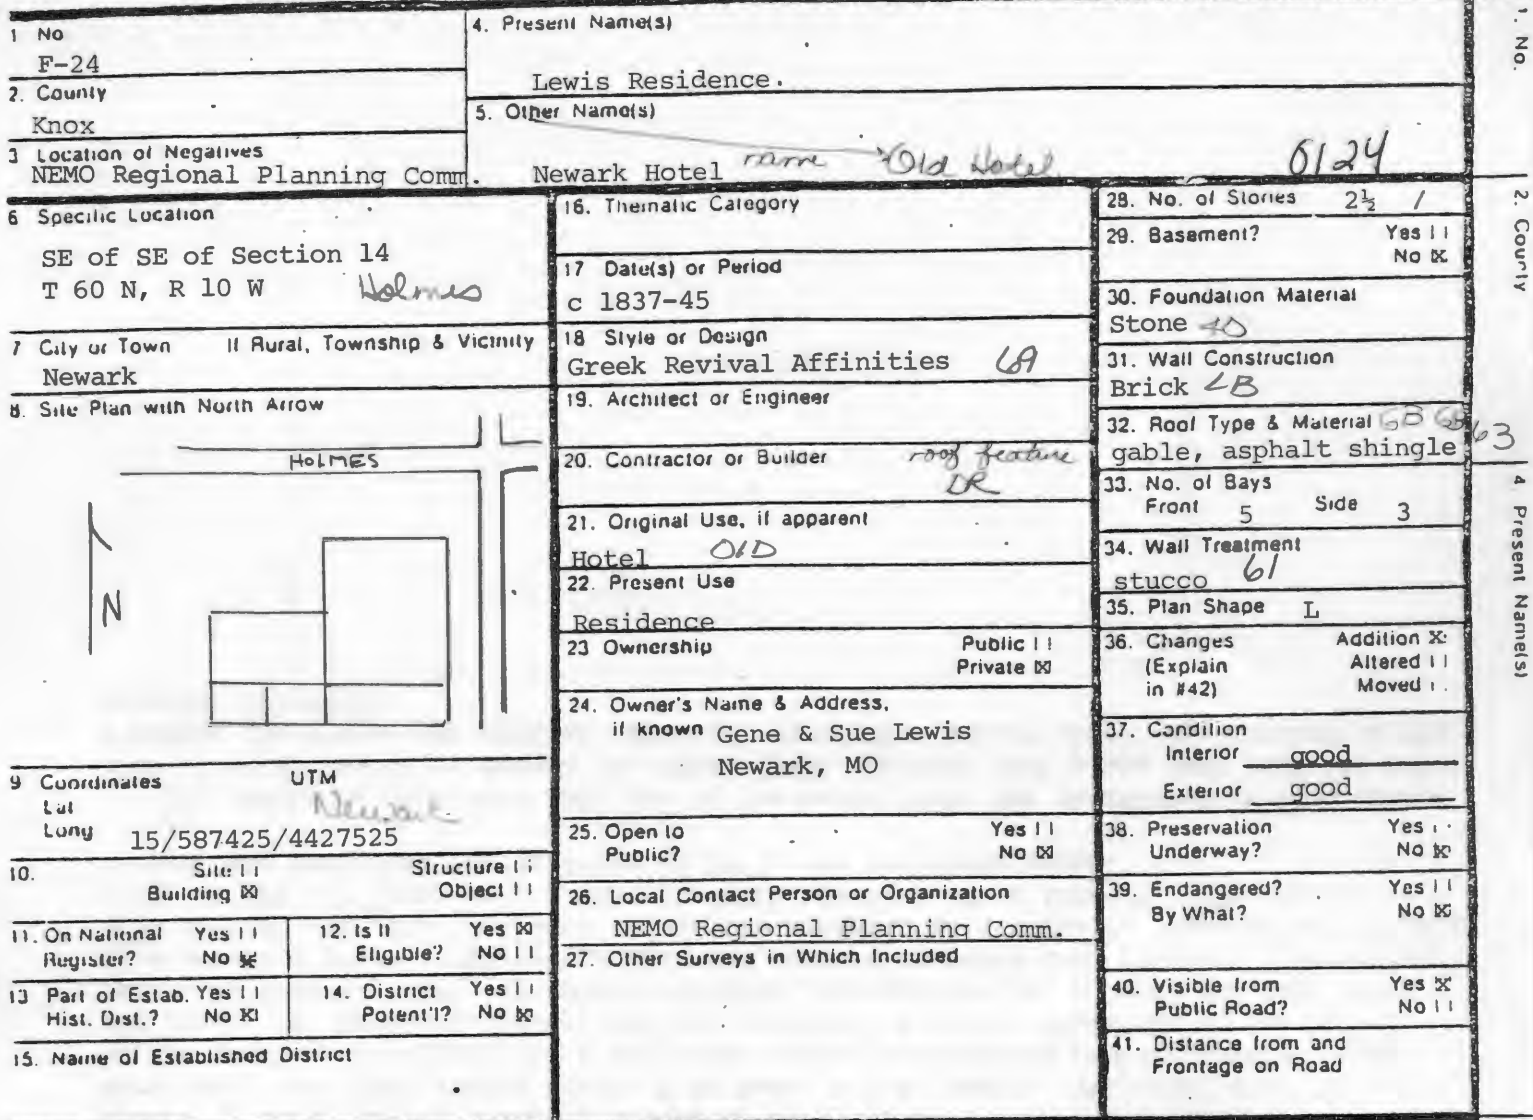 1 No
F-24
2. County
Knox
3 Location of Negatives
NEMO Regional Planning Comm.
4. Present Name(s)
Lewis Residence.
5. Other Name(s)
Newark Hotel name Old Hotel 0124
6 Specific Location
SE of SE of Section 14
T 60 N, R 10 W Holmes
7 City or Town If Rural, Township & Vicinity
Newark
8. Site Plan with North Arrow
HOLMES
N
9 Coordinates UTM
Lat Newark
Long 15/587425/4427525
10. Site Structure
Building ☒ Object
11. On National Yes
Register? No ☒
12. Is It Yes ☒
Eligible? No
13 Part of Estab. Yes
Hist. Dist.? No ☒
14. District Yes
Potent'l? No ☒
15. Name of Established District
16. Thematic Category
17 Date(s) or Period
c 1837-45
18 Style or Design
Greek Revival Affinities
19. Architect or Engineer
20. Contractor or Builder roof feature
DR
21. Original Use, if apparent
Hotel 01D
22. Present Use
Residence
23 Ownership Public
Private ☒
24. Owner's Name & Address,
if known Gene & Sue Lewis
Newark, MO
25. Open to Yes
Public? No ☒
26. Local Contact Person or Organization
NEMO Regional Planning Comm.
27. Other Surveys in Which Included
28. No. of Stories 2½
29. Basement? Yes
No ☒
30. Foundation Material
Stone 40
31. Wall Construction
Brick
32. Roof Type & Material 63
gable, asphalt shingle
33. No. of Bays
Front 5 Side 3
34. Wall Treatment
stucco 61
35. Plan Shape L
36. Changes Addition X
(Explain Altered
in #42) Moved
37. Condition
Interior good
Exterior good
38. Preservation Yes
Underway? No ☒
39. Endangered? Yes
By What? No ☒
40. Visible from Yes ☒
Public Road? No
41. Distance from and
Frontage on Road
1. No.
2. County
4 Present Name(s)